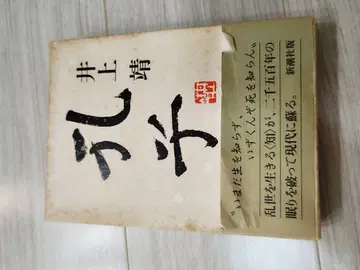 井上 靖
孔子
“いまだ生を知らず、
いずくんぞ死を知らん〟
乱世を生きる〈知〉が、二千五百年の
眠りを破って現代に蘇る。
新潮社版